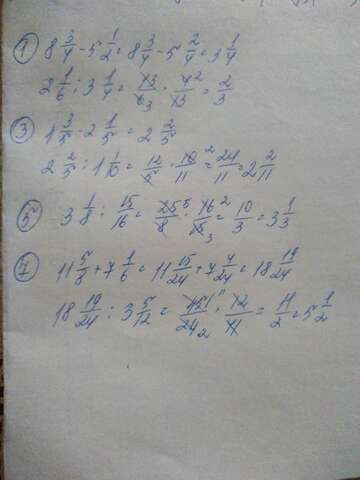 ① 8 3/4 - 5 1/2 = 8 3/4 - 5 2/4 = 3 1/4
2 1/6 : 3 1/4 = 13/6 3 · 4 2/13 = 2/3
③ 4 3/5 - 2 1/5 = 2 2/5
2 2/5 : 1 1/10 = 12/5 · 10 2/11 = 24/11 = 2 2/11
⑤ 3 1/8 : 15/16 = 25 5/8 · 16 2/15 3 = 10/3 = 3 1/3
⑦ 11 5/8 + 7 1/6 = 11 15/24 + 7 4/24 = 18 19/24
18 19/24 : 3 5/12 = 451 11/24 2 · 12/41 = 11/2 = 5 1/2